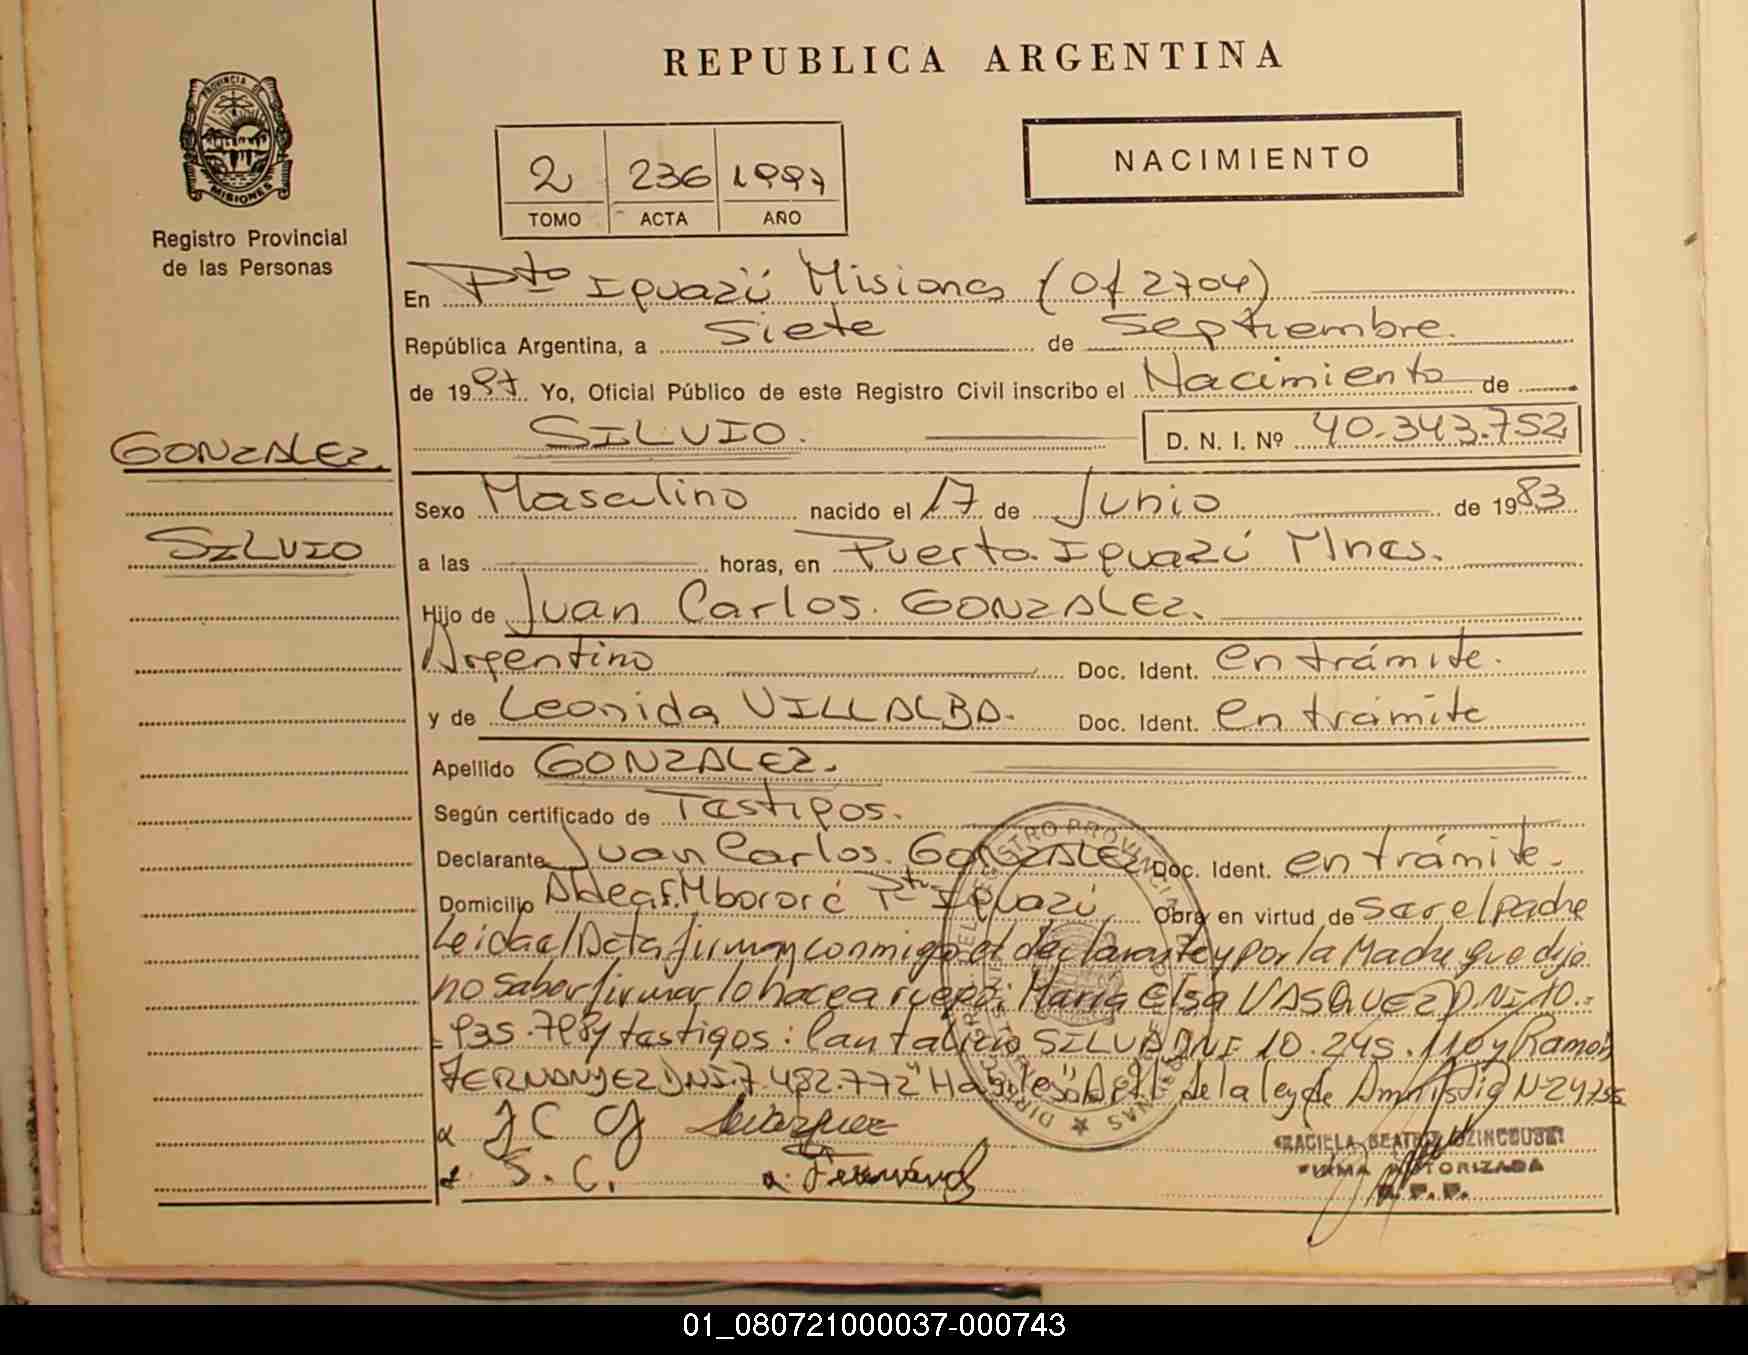 REPUBLICA ARGENTINA
PROVINCIA DE MISIONES
Registro Provincial
de las Personas
2 236 1997
TOMO ACTA AÑO
NACIMIENTO
En Pto Iguazú Misiones (Of 2704)
República Argentina, a Siete de Septiembre.
de 1997. Yo, Oficial Público de este Registro Civil inscribo el Nacimiento de
SILVIO. D. N. I. Nº 40.343.752
GONZALEZ
SILVIO
Sexo Masculino nacido el 17 de Junio de 1983
a las horas, en Puerto Iguazú Mnes.
Hijo de Juan Carlos. GONZALEZ.
Argentino Doc. Ident. en trámite.
y de Leonida VILLALBA. Doc. Ident. en trámite
Apellido GONZALEZ.
Según certificado de Testigos.
Declarante Juan Carlos. GONZALEZ Doc. Ident. en trámite.
Domicilio Aldea F. Mbororé Pto Iguazú Obra en virtud de Ser el padre
Leida el Acta firman conmigo el declarante y por la Madre que dijo
no saber firmar lo hace a ruego: Maria Elsa VASQUEZ DNI 10.-
testigos: Cantalicio SILVA DNI 10.245.110 y Ramón
FERNANDEZ DNI. 7.482.772 de la ley de Amnistia Nº 24.755
J C G Vazquez
S. C. Fernández
GRACIELA BEATRIZ
FIRMA AUTORIZADA
R. P. P.
01_080721000037-000743